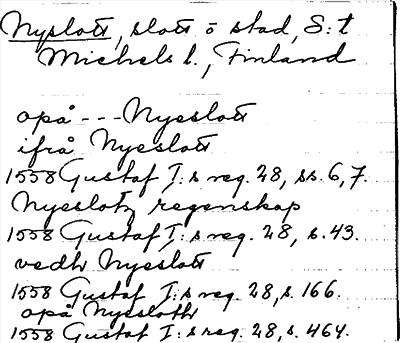 Nyslott, slott o stad, S:t
Michels l., Finland
opå --- Nyeslott
ifrå Nyeslott
1558 Gustaf I:s reg. 28, ss. 6, 7.
Nyeslotz regenskap
1558 Gustaf I:s reg. 28, s. 43.
vedh Nyeslott
1558 Gustaf I:s reg. 28, s. 166.
opå Nyeslotht
1558 Gustaf I:s reg. 28, s. 464.